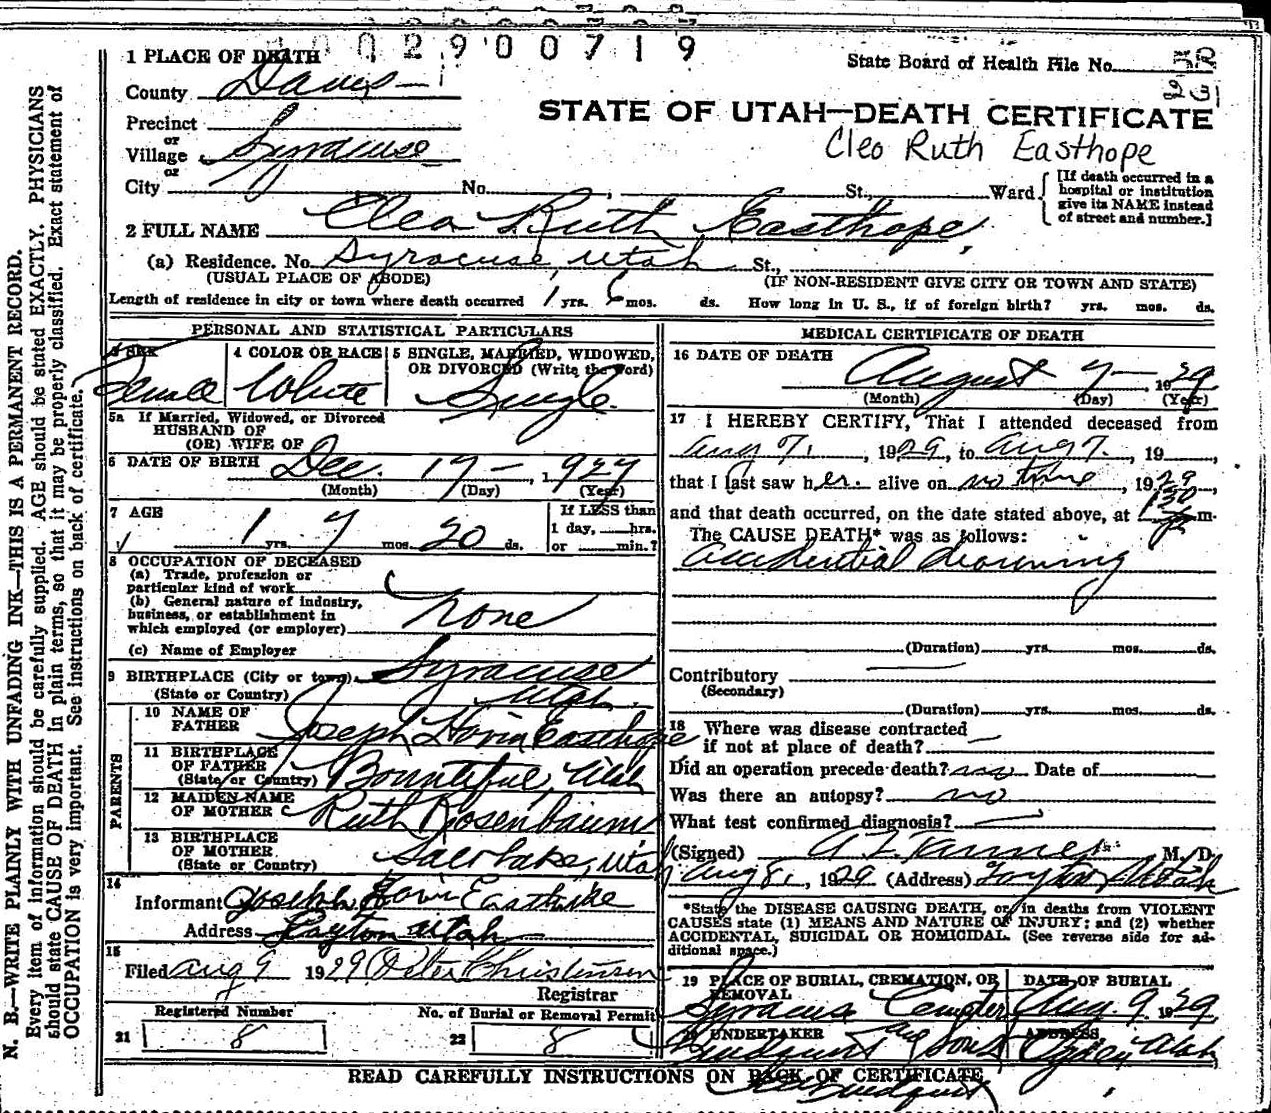 1002900719
1 PLACE OF DEATH
State Board of Health File No.
County Davis
STATE OF UTAH—DEATH CERTIFICATE
Precinct
or
Village Syracuse
Cleo Ruth Easthope
or
City No. , St., Ward
[If death occurred in a
hospital or institution
give its NAME instead
of street and number.]
2 FULL NAME Cleo Ruth Easthope,
(a) Residence. No. Syracuse, Utah St.,
(USUAL PLACE OF ABODE) (IF NON-RESIDENT GIVE CITY OR TOWN AND STATE)
Length of residence in city or town where death occurred 1 yrs. 6 mos. ds. How long in U. S., if of foreign birth? yrs. mos. ds.
PERSONAL AND STATISTICAL PARTICULARS
3 SEX
Female
4 COLOR OR RACE
White
5 SINGLE, MARRIED, WIDOWED,
OR DIVORCED (Write the word)
Single
5a If Married, Widowed, or Divorced
HUSBAND OF
(OR) WIFE OF
6 DATE OF BIRTH Dec. 17 — , 1927
(Month) (Day) (Year)
7 AGE
1 yrs. 7 mos. 20 ds.
If LESS than
1 day, hrs.
or min.?
8 OCCUPATION OF DECEASED
(a) Trade, profession or
particular kind of work
(b) General nature of industry,
business, or establishment in
which employed (or employer)
None
(c) Name of Employer
9 BIRTHPLACE (City or town) Syracuse
(State or Country) Utah
PARENTS
10 NAME OF
FATHER Joseph Easthope
11 BIRTHPLACE
OF FATHER
(State or Country) Bountiful, Utah
12 MAIDEN NAME
OF MOTHER Ruth Rosenbaum
13 BIRTHPLACE
OF MOTHER
(State or Country) Salt Lake, Utah
14
Informant Joseph
Address Layton Utah
15
Filed Aug 9 1929 Peter Christensen
Registrar
Registered Number
21 8
No. of Burial or Removal Permit
22 8
MEDICAL CERTIFICATE OF DEATH
16 DATE OF DEATH
August 7 — , 1929
(Month) (Day) (Year)
17 I HEREBY CERTIFY, That I attended deceased from
Aug 7. , 1929, to Aug 7. , 19 ,
that I last saw her. alive on no time , 1929,
and that death occurred, on the date stated above, at 130 p m.
The CAUSE DEATH* was as follows:
accidential drowning
(Duration) yrs. mos. ds.
Contributory
(Secondary)
(Duration) yrs. mos. ds.
18 Where was disease contracted
if not at place of death? —
Did an operation precede death? no Date of
Was there an autopsy? no
What test confirmed diagnosis? —
(Signed) A Z Tanner M. D.
Aug 8. , 1929 (Address) Layton Utah
*State the DISEASE CAUSING DEATH, or, in deaths from VIOLENT
CAUSES state (1) MEANS AND NATURE OF INJURY; and (2) whether
ACCIDENTAL, SUICIDAL OR HOMICIDAL. (See reverse side for ad-
ditional space.)
19 PLACE OF BURIAL, CREMATION, OR
REMOVAL
DATE OF BURIAL
Syracus Aug. 9, 1929
20 UNDERTAKER
ADDRESS
and Sons Ogden Utah
READ CAREFULLY INSTRUCTIONS ON BACK OF CERTIFICATE
N. B.—WRITE PLAINLY WITH UNFADING INK—THIS IS A PERMANENT RECORD.
Every item of information should be carefully supplied. AGE should be stated EXACTLY. PHYSICIANS
should state CAUSE OF DEATH in plain terms, so that it may be properly classified. Exact statement of
OCCUPATION is very important. See instructions on back of certificate.